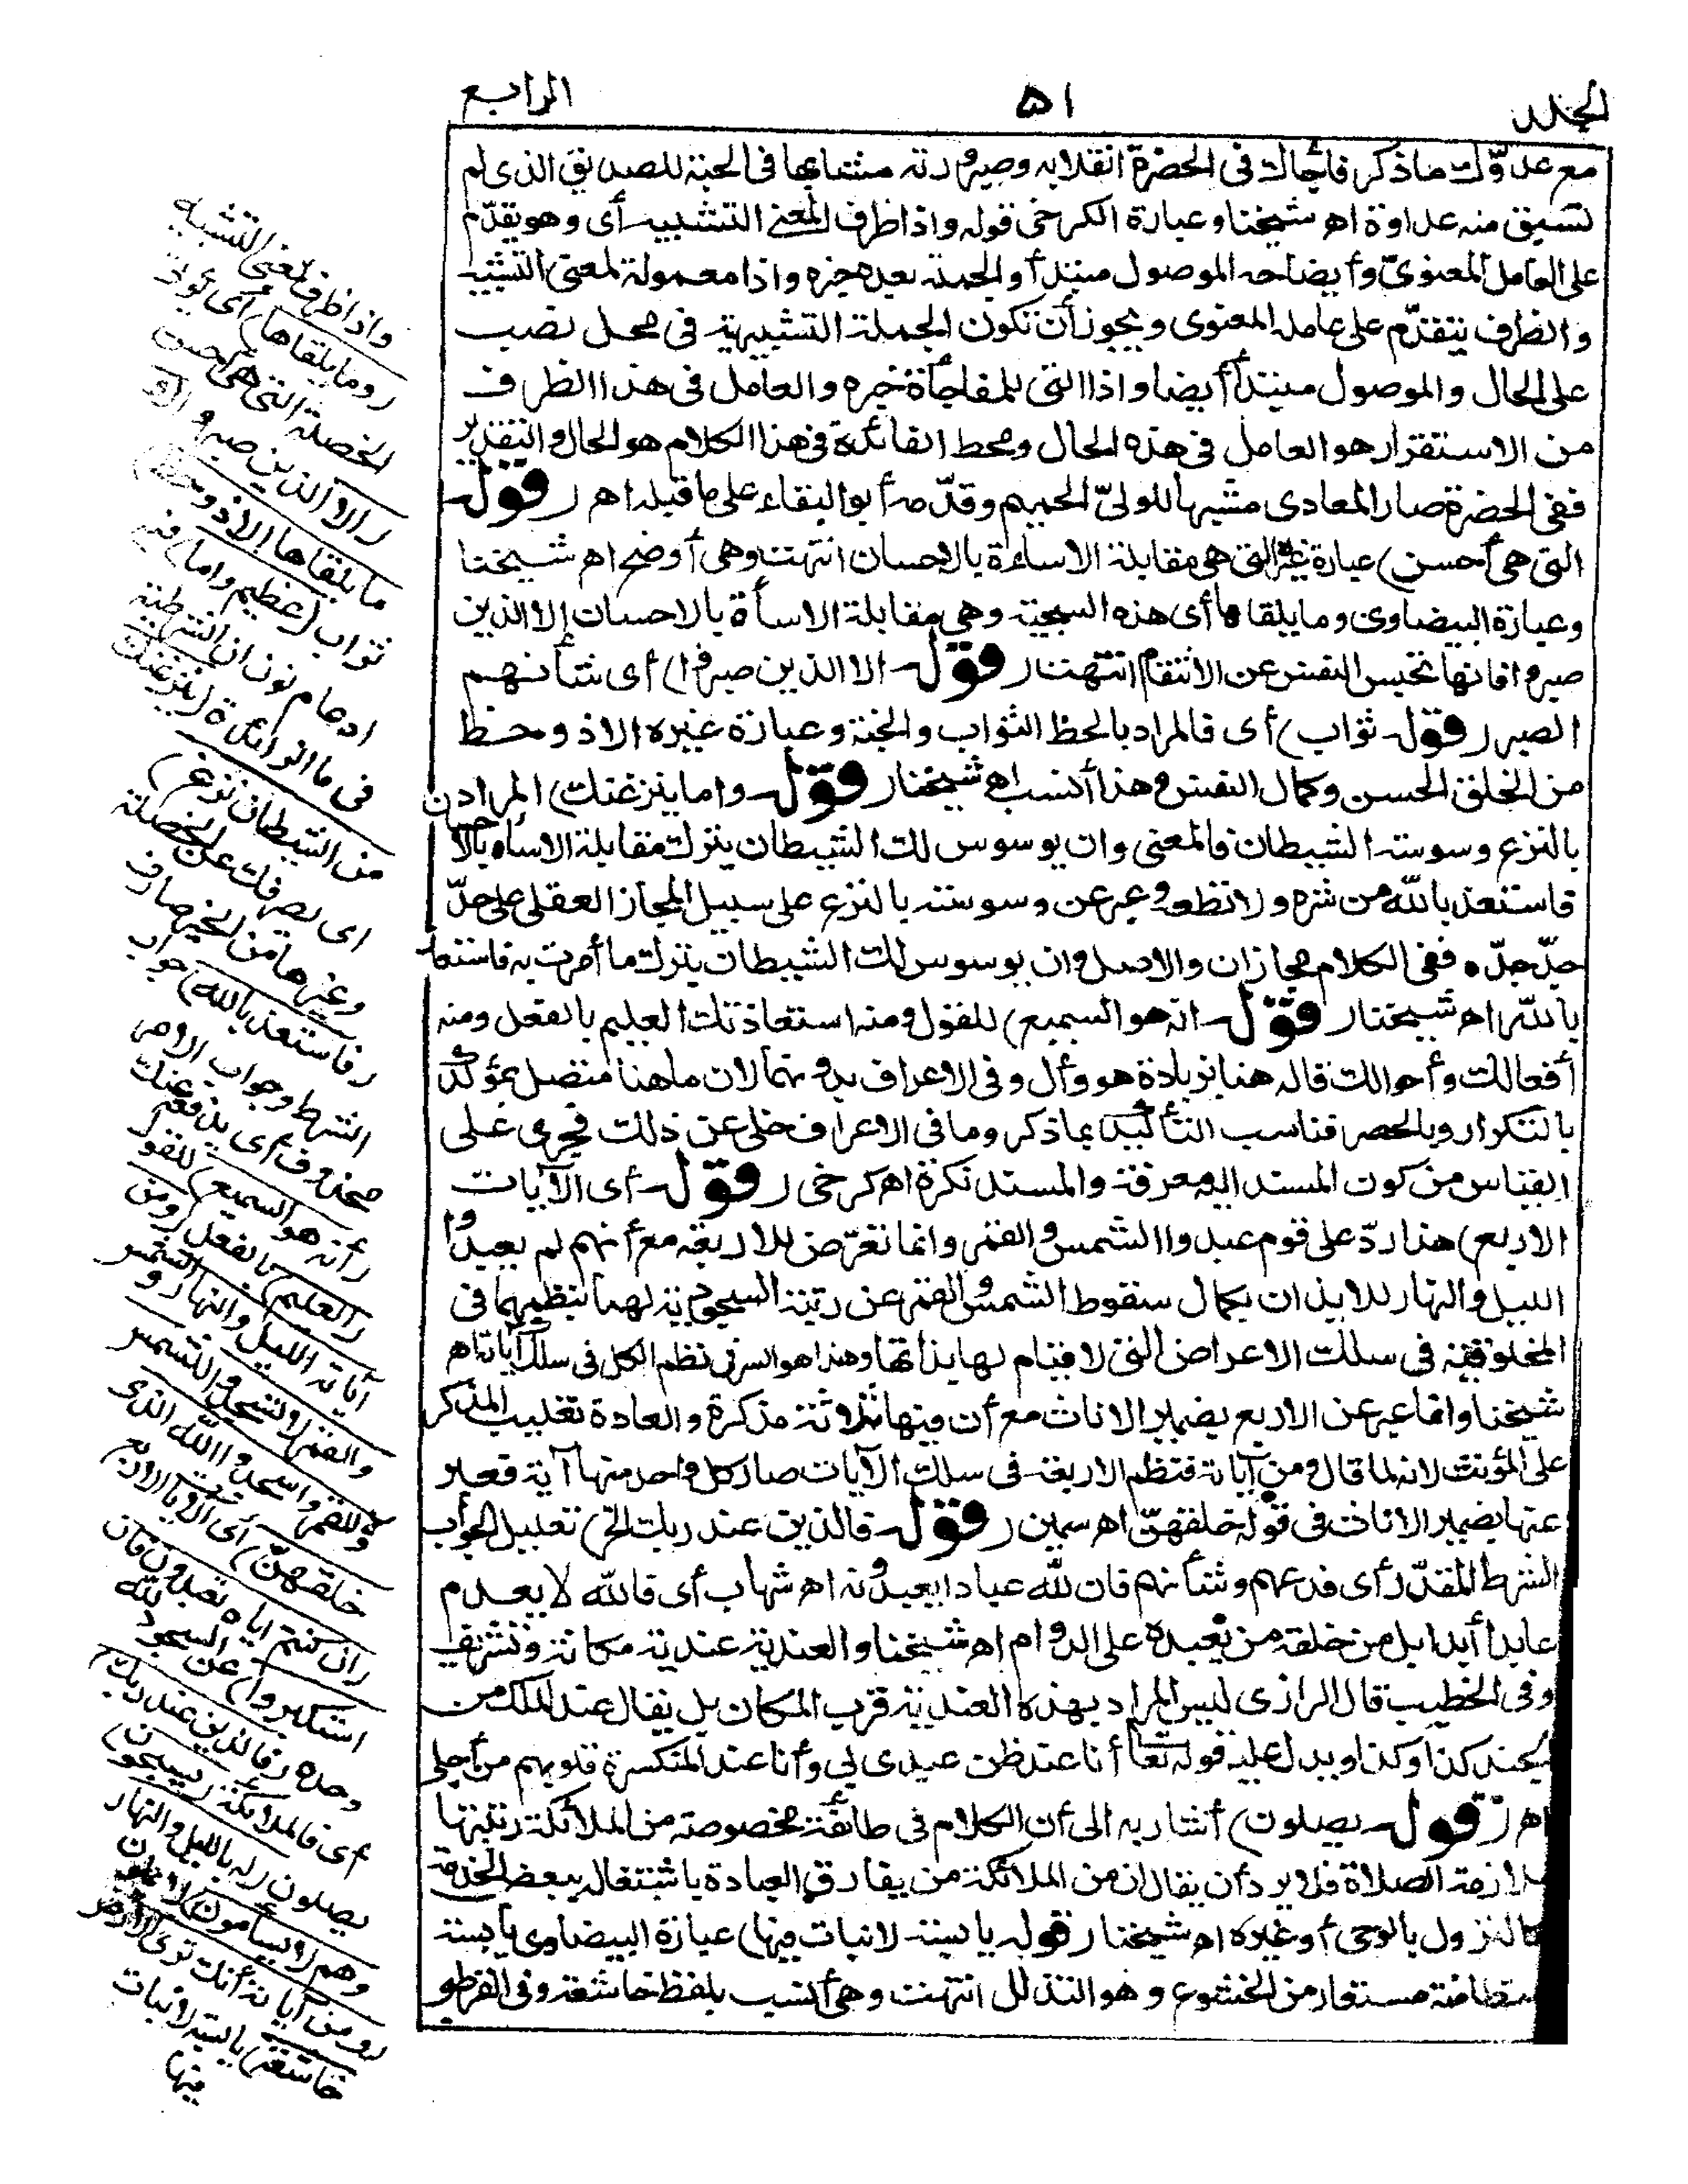 المجلد
٥١
الرابع
مع عدوّك ما ذكر فاجأك في الحضرة انقلابه وصيرورته مشابها في المحبة للصديق الذي لم
تسبق منه عداوة اه شيخنا وعبارة الكرخي قوله واذا ظرف لمعنى التشبيه أى وهو يقدّم
على العامل المعنوىّ وأيضاحه الموصول مبتدأ والجملة بعده خبره واذا معمولة لمعنى التشبيه
والظرف يتقدّم على عامله المعنوى ويجوز أن تكون الجملة التشبيهية فى محل نصب
على الحال والموصول مبتدأ أيضا واذا التى للمفاجأة خبره والعامل فى هذا الظرف
من الاستقرار هو العامل فى هذه الحال ومحط الفائدة فى هذا الكلام هو الحال والتقدير
ففى الحضرة صار المعادى مشبها للولىّ الحميم وقدّمه أبو البقاء على ما قبله اه (قوله
التى هى أحسن) عبارة غيره التى هى مقابلة الاساءة بالاحسان انتهت وهى أوضح اه شيخنا
وعبارة البيضاوى وما يلقاها أى هذه السجية وهى مقابلة الاسأة بالاحسان إلا الذين
صبروا فانها تحبس النفس عن الانتقام انتهت (قوله الا الذين صبروا) أى شأنهم
الصبر (قوله ثواب) أى فالمراد بالحظ الثواب والجنة وعبارة غيره الا ذو حظ
من الخلق الحسن وكمال النفس وهذا أنسب اه شيخنا (قوله واما ينزغنك) المراد
بالنزغ وسوسة الشيطان فالمعنى وان يوسوس لك الشيطان بترك مقابلة الاساءه بالاحسان
فاستعذ بالله من شره ولا تطعه وعبر عن وسوسته بالنزغ على سبيل المجاز العقلى على حدّ
جدّ جدّه ففى الكلام مجازان والاصل وان يوسوس لك الشيطان بترك ما أمرت به فاستعذ
بالله اه شيخنا (قوله انه هو السميع) للقول ومنه استعاذتك العليم بالفعل ومنه
أفعالك وأحوالك قاله هنا بزيادة هو وأل وفى الاعراف بدونهما لان ما هنا متصل بمؤكد
بالتكرار وبالحصر فناسب التأكيد بما ذكر وما فى الاعراف خلى عن ذلك فجرى على
القياس من كون المسند اليه معرفة والمسند نكرة اه كرخى (قوله أى الآيات
الاربع) هذا ردّ على قوم عبدوا الشمس والقمر وانما تعرّض للاربعة مع أنهم لم يعبدوا
الليل والنهار للايذان بكمال سقوط الشمس والقمر عن رتبة السجودية لهما بنظمهما فى
المخلوقية فى سلك الاعراض التى لا قيام لها بذاتها وهذا هو السر فى نظم الكل فى سلك آياته اه
شيخنا وانما عبر عن الاربع بضمير الاناث مع أن فيها ثلاثة مذكرة والعادة تغليب المذكر
على المؤنث لانه لما قال ومن آياته فنظم الاربعة فى سلك الآيات صار كل واحد منها آية فعبر
عنها بضمير الاناث فى قوله خلقهنّ اه سمين (قوله فالذين عند ربك الخ) تعليل لجواب
الشرط المقدّر أى فدعهم وشأنهم فان لله عبادا يعبدونه اه شهاب أى فالله لا يعدم
عابدا أبدا بل من خلقه من يعبده على الدوام اه شيخنا والعندية عندية مكانة وتشريف
وفى الخطيب قال الرازى ليس المراد بهذه العندية قرب المكان بل يقال عند الملك من
الجند كذا وكذا ويدل عليه قوله تعا أنا عند ظن عبدى بى وأنا عند المنكسرة قلوبهم من أجلى
اه (قوله يصلون) أشار به الى أن الكلام فى طائفة مخصوصة من الملائكة رتبتها
ملازمة الصلاة فلا يرد أن يقال ان من الملائكة من يفارق العبادة باشتغاله ببعض الخدمة
كالنزول بالوحى أو غيره اه شيخنا (قوله يابسة لا نبات فيها) عبارة البيضاوى يابسة
متطامنة مستعار من الخشوع وهو التذلل انتهت وهى أنسب بلفظ خاشعة وفى القرطبى
واذا ظرف لمعنى التشبيه
(وما يلقاها) أى يؤتى
الخصلة التى هى أحسن
(الا الذين صبروا
وما يلقاها الا ذو حظ)
ثواب (عظيم واما) فيه
ادغام نون ان الشرطية
فى ما الزائدة (ينزغنك
من الشيطان نزغ)
اى يصرفك عن الخصلة
وغيرها من الخير صارف
(فاستعذ بالله) جواب
الشرط وجواب الامر
محذوف أى يدفعه عنك
(أنه هو السميع) للقول
(العليم) بالفعل (ومن
آياته الليل والنهار و الشمس
والقمر لا تسجدوا للشمس
ولا للقمر واسجدوا لله الذى
خلقهنّ) أى الآيات الاربع
(ان كنتم اياه تعبدون فان
استكبروا) عن السجود لله
وحده (فالذين عند ربك)
أى فالملائكة (يسبحون)
يصلون (له بالليل والنهار
وهم لا يسأمون) لا يملون
(ومن آياته أنك ترى الارض
خاشعة) يابسة لا نبات
فيها